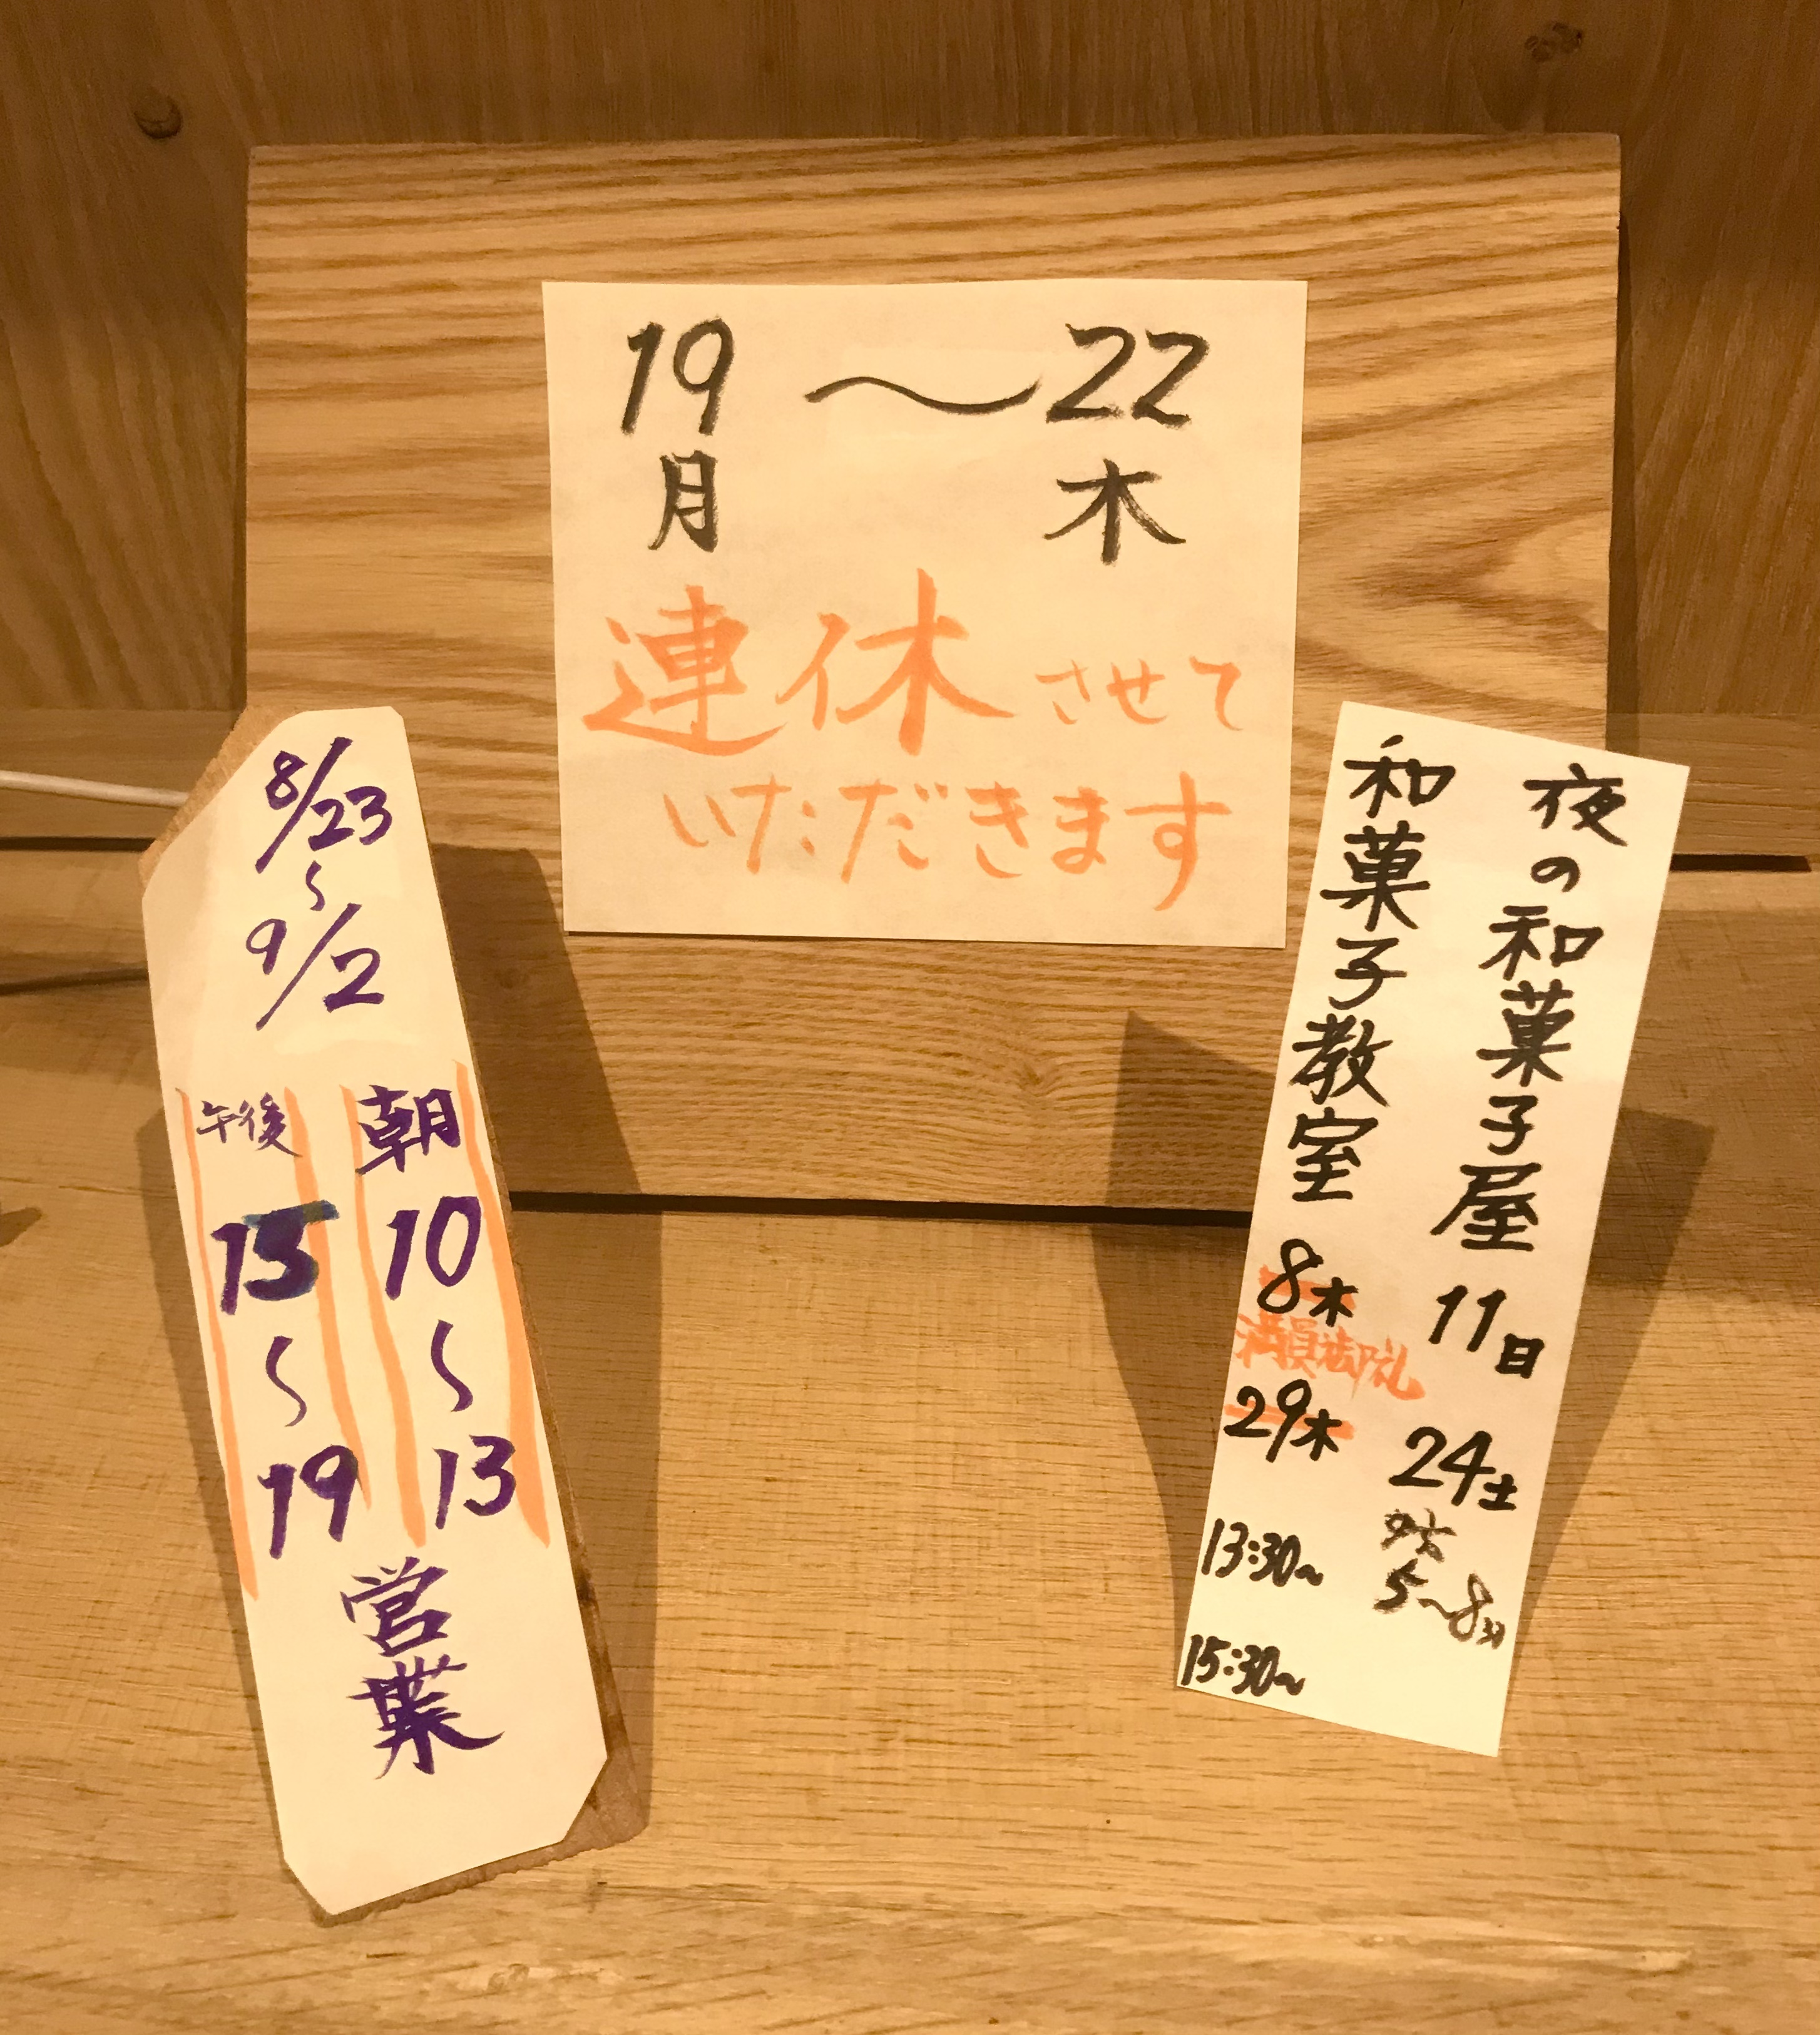 19 〜 22
月 木
連休させて
いただきます
8/23
〜
9/2
朝
10
〜
13
午後
15
〜
19
営業
夜の和菓子屋
11日
24土
5〜8
和菓子教室
8木
満員御礼
29木
13:30〜
15:30〜